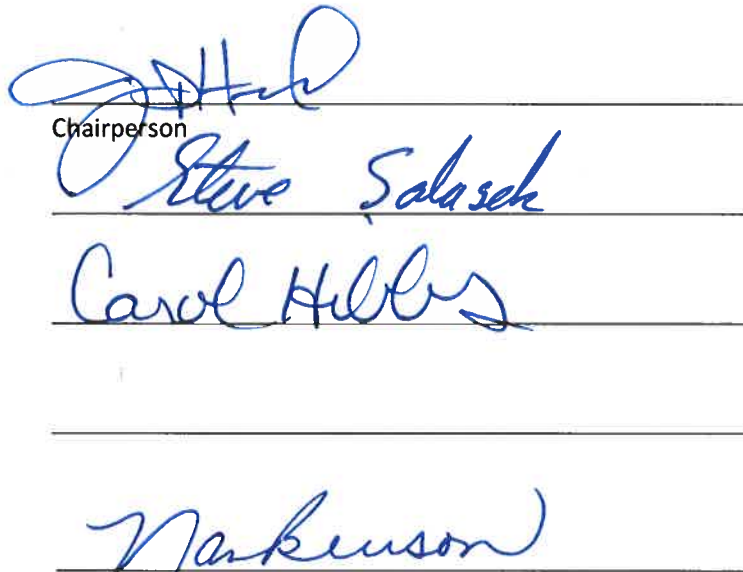 Chairperson
Steve Salasek
Carol Hibbs
Nan Benson